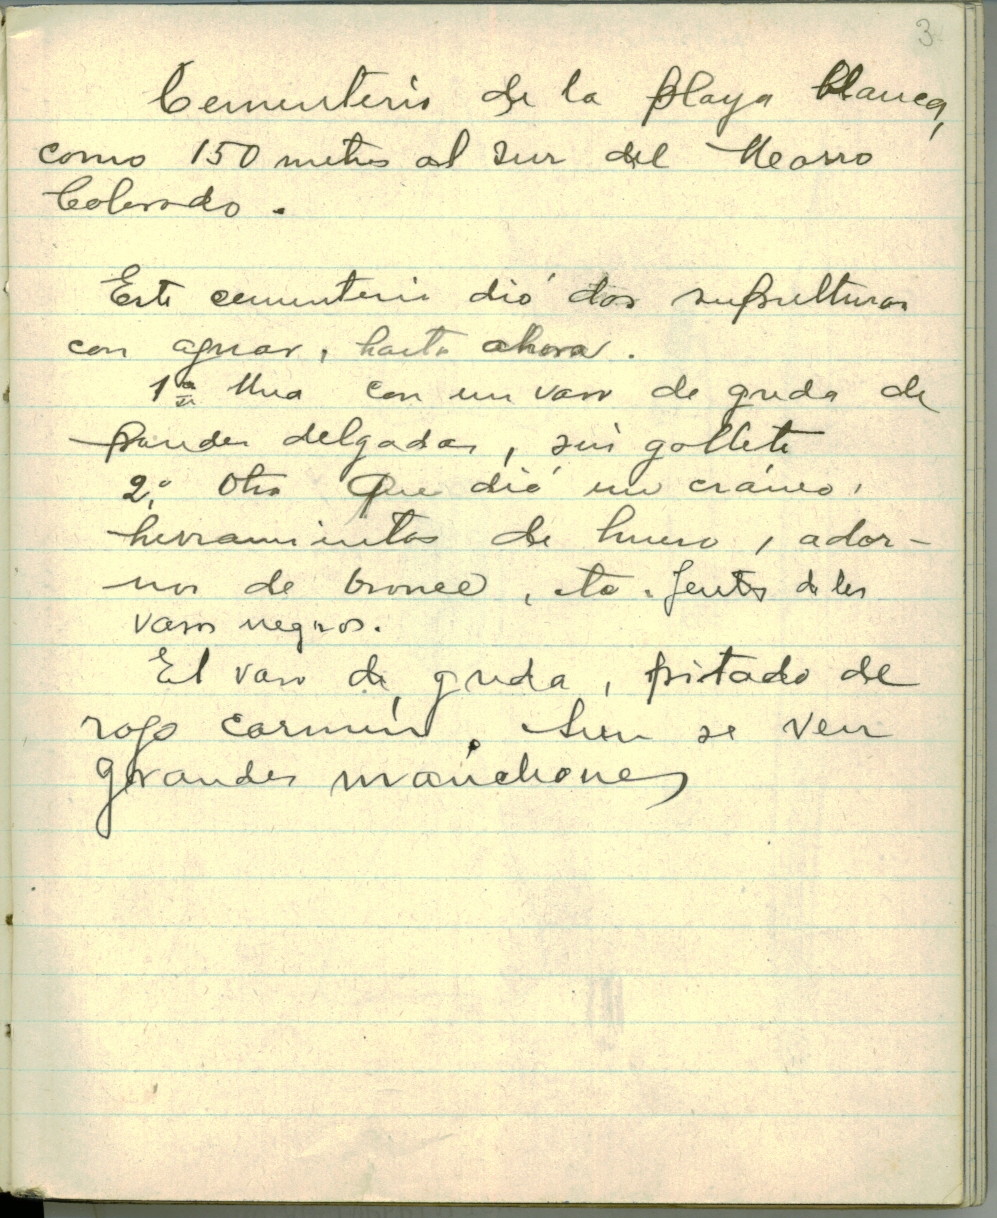 3
Cementerio de la playa blanca,
como 150 metros al sur del Morro
Colorado.
Este cementerio dió dos sepulturas
con aguar, hasta ahora.
1ª Una con un vaso de greda de
paredes delgadas, sin gollete
2.° Otra que dió un cráneo,
herramientas de hueso, ador-
nos de bronce, etc. Gentes de los
vasos negros.
El vaso de greda, pintado de
rojo carmín. Aun se ven
grandes manchones